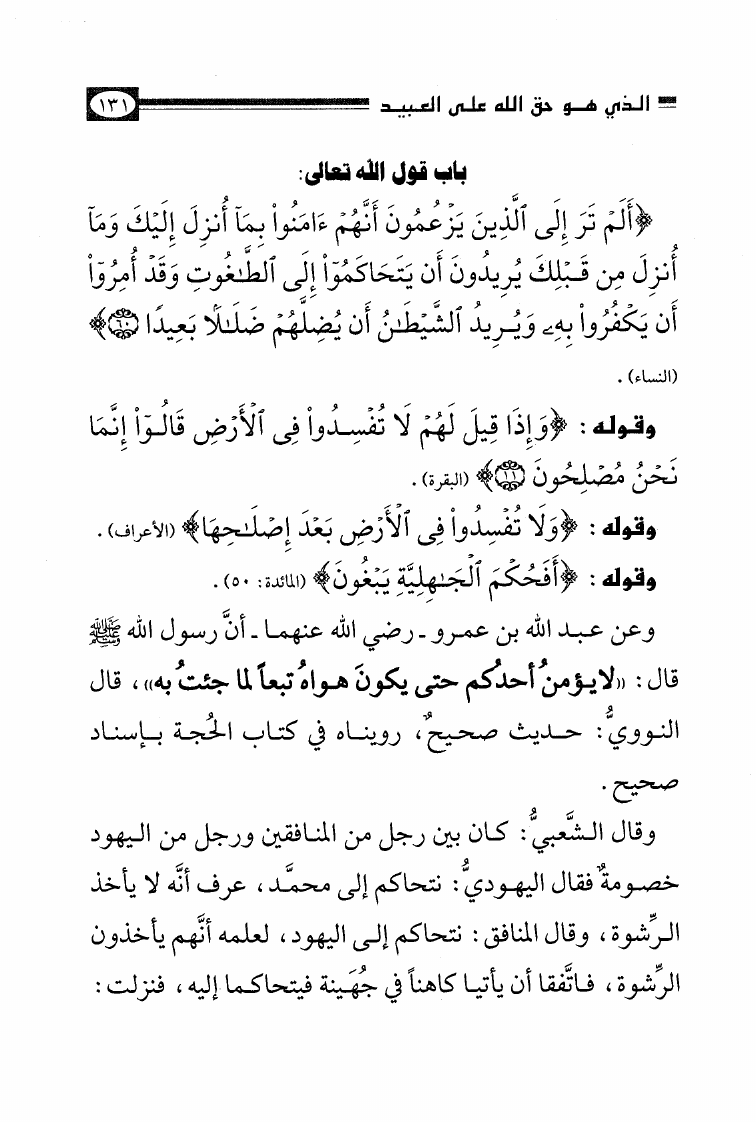 الذي هو حق الله على العبيد ١٣١
باب قول الله تعالى:
﴿أَلَمْ تَرَ إِلَى ٱلَّذِينَ يَزْعُمُونَ أَنَّهُمْ ءَامَنُوا۟ بِمَآ أُنزِلَ إِلَيْكَ وَمَآ
أُنزِلَ مِن قَبْلِكَ يُرِيدُونَ أَن يَتَحَاكَمُوٓا۟ إِلَى ٱلطَّـٰغُوتِ وَقَدْ أُمِرُوٓا۟
أَن يَكْفُرُوا۟ بِهِۦ وَيُرِيدُ ٱلشَّيْطَـٰنُ أَن يُضِلَّهُمْ ضَلَـٰلًۢا بَعِيدًا ٦٠﴾
(النساء) .
وقوله : ﴿وَإِذَا قِيلَ لَهُمْ لَا تُفْسِدُوا۟ فِى ٱلْأَرْضِ قَالُوٓا۟ إِنَّمَا
نَحْنُ مُصْلِحُونَ ١١﴾ (البقرة) .
وقوله : ﴿وَلَا تُفْسِدُوا۟ فِى ٱلْأَرْضِ بَعْدَ إِصْلَـٰحِهَا﴾ (الأعراف) .
وقوله : ﴿أَفَحُكْمَ ٱلْجَـٰهِلِيَّةِ يَبْغُونَ﴾ (المائدة: ٥٠) .
وعن عبد الله بن عمرو ـ رضي الله عنهما ـ أنَّ رسول الله ﷺ
قال : «لا يؤمنُ أحدُكم حتى يكونَ هواهُ تبعاً لما جئتُ به» ، قال
النوويُّ : حديث صحيحٌ ، رويناه في كتاب الحُجة بإسناد
صحيح .
وقال الشَّعبيُّ : كان بين رجل من المنافقين ورجل من اليهود
خصومةٌ فقال اليهوديُّ : نتحاكم إلى محمَّد ، عرف أنَّه لا يأخذ
الرِّشوة ، وقال المنافق : نتحاكم إلى اليهود ، لعلمه أنَّهم يأخذون
الرِّشوة ، فاتَّفقا أن يأتيا كاهناً في جُهَينة فيتحاكما إليه ، فنزلت :